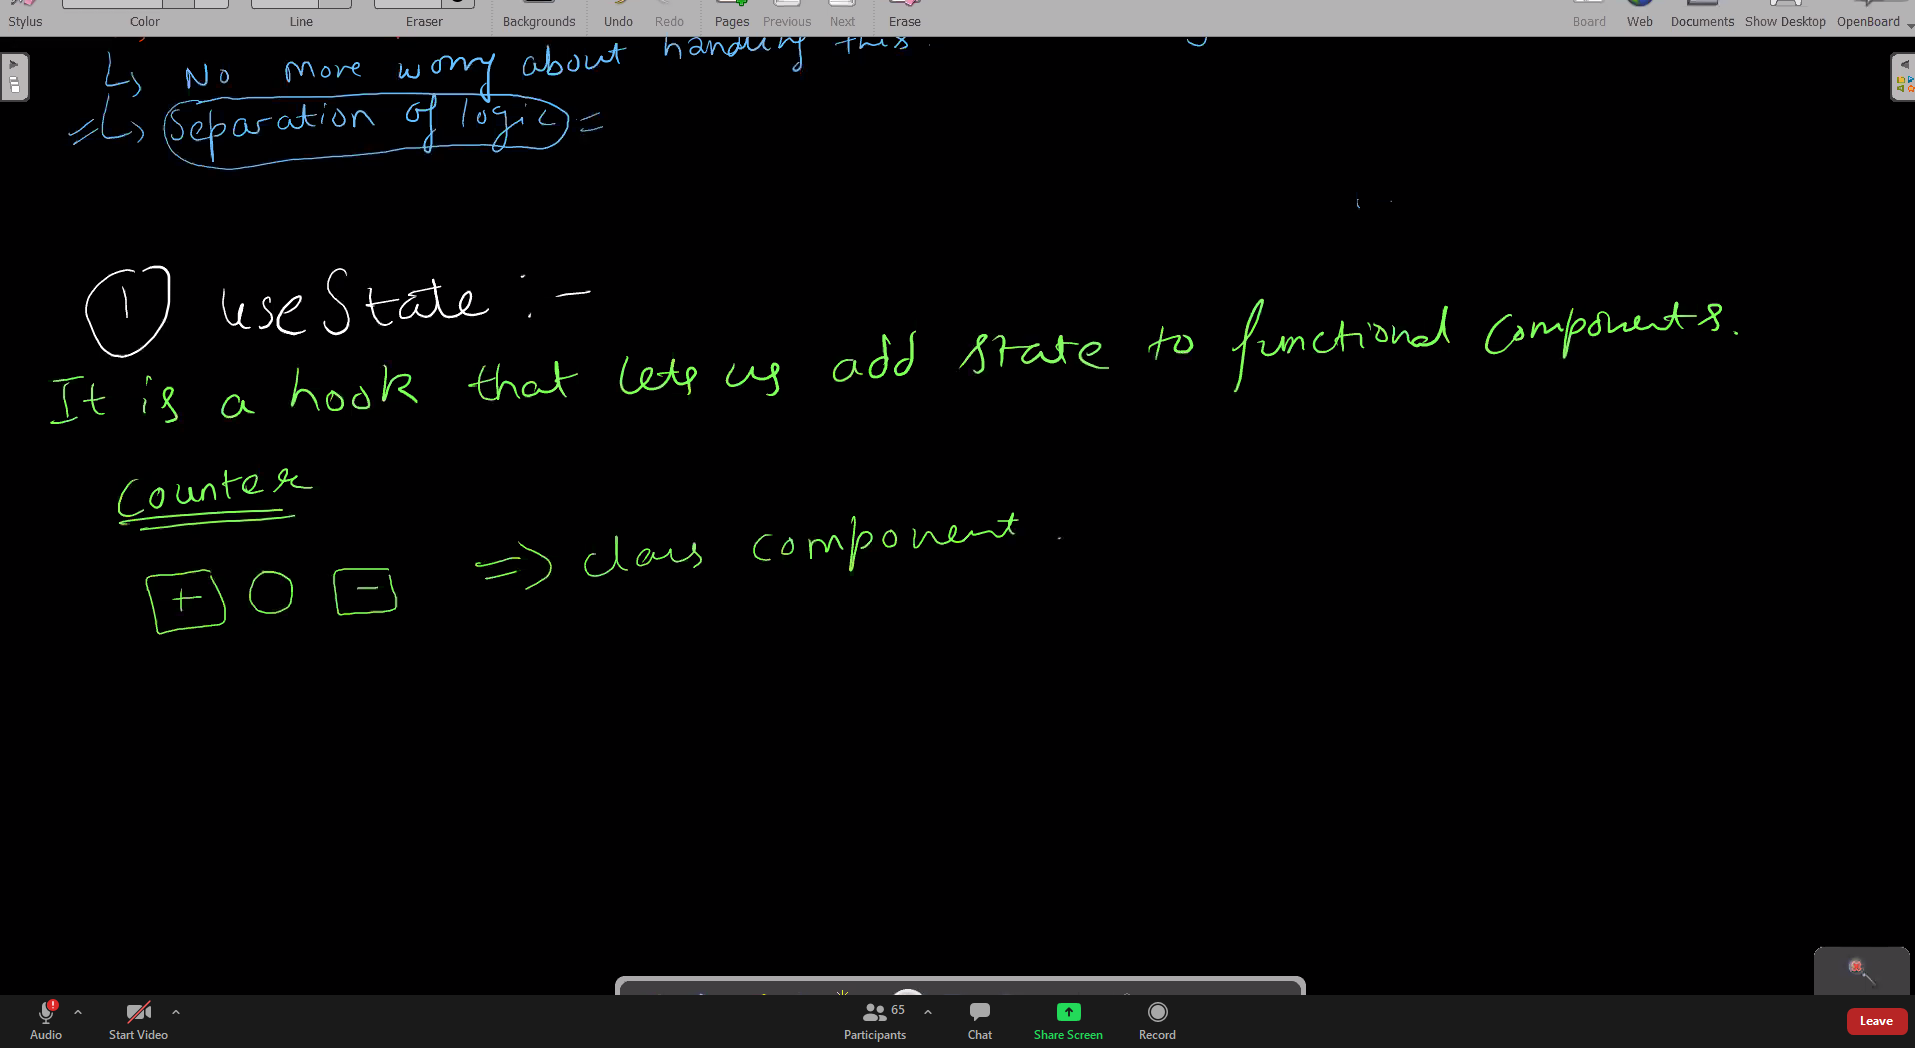 Stylus Color Line Eraser Backgrounds Undo Redo Pages Previous Next Erase Board Web Documents Show Desktop OpenBoard
No more worry about handling this.
Separation of logic =
1 useState :-
It is a hook that lets us add state to functional components.
Counter
+ O - => class component.
Audio Start Video 65 Participants Chat Share Screen Record Leave